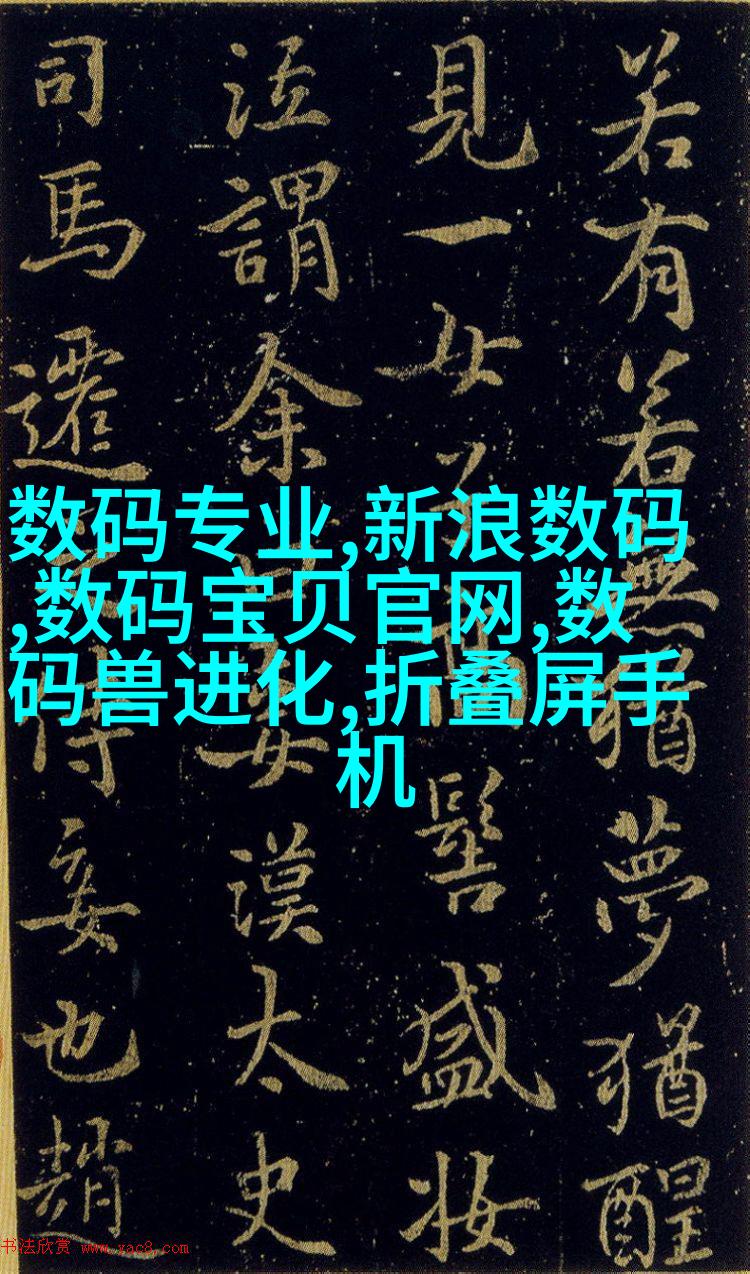 若有若無猶夢猶醒
見一女髻盛妝
泣謂余妾漢太史
司馬遷侍妾也趙
数码专业,新浪数码
,数码宝贝官网,数
码兽进化,折叠屏手
机
书法欣赏 www.yac8.com